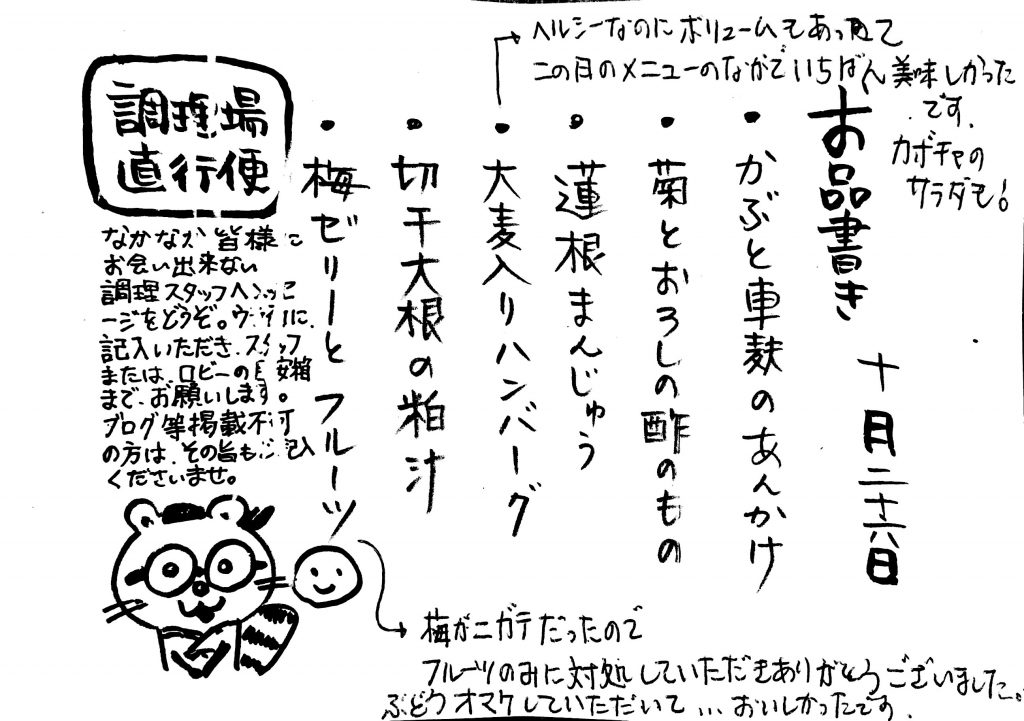 ヘルシーなのにボリュームもあって
この日のメニューのなかでいちばん美味しかった
です。
カボチャの
サラダも!
お品書き 十月二十六日
・かぶと車麸のあんかけ
・菊とおろしの酢のもの
・蓮根まんじゅう
・大麦入りハンバーグ
・切干大根の粕汁
・梅ゼリーとフルーツ
調理場
直行便
なかなか皆様に
お会い出来ない
調理スタッフへ
ージをどうぞ。
記入いただき、スタッフ
または、ロビーの
まで、お願いします。
ブログ等掲載不可
の方は、その旨も
くださいませ。
梅がニガテだったので
フルーツのみに対処していただきありがとうございました。
ぶどうオマケしていただいて…おいしかったです。